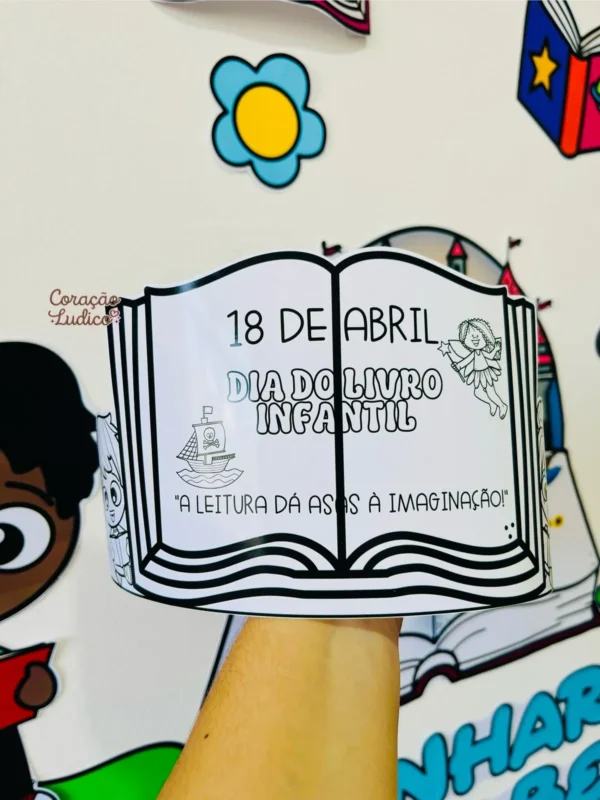 Coração
Lúdico
18 DE ABRIL
DIA DO LIVRO
INFANTIL
"A LEITURA DÁ ASAS À IMAGINAÇÃO!"